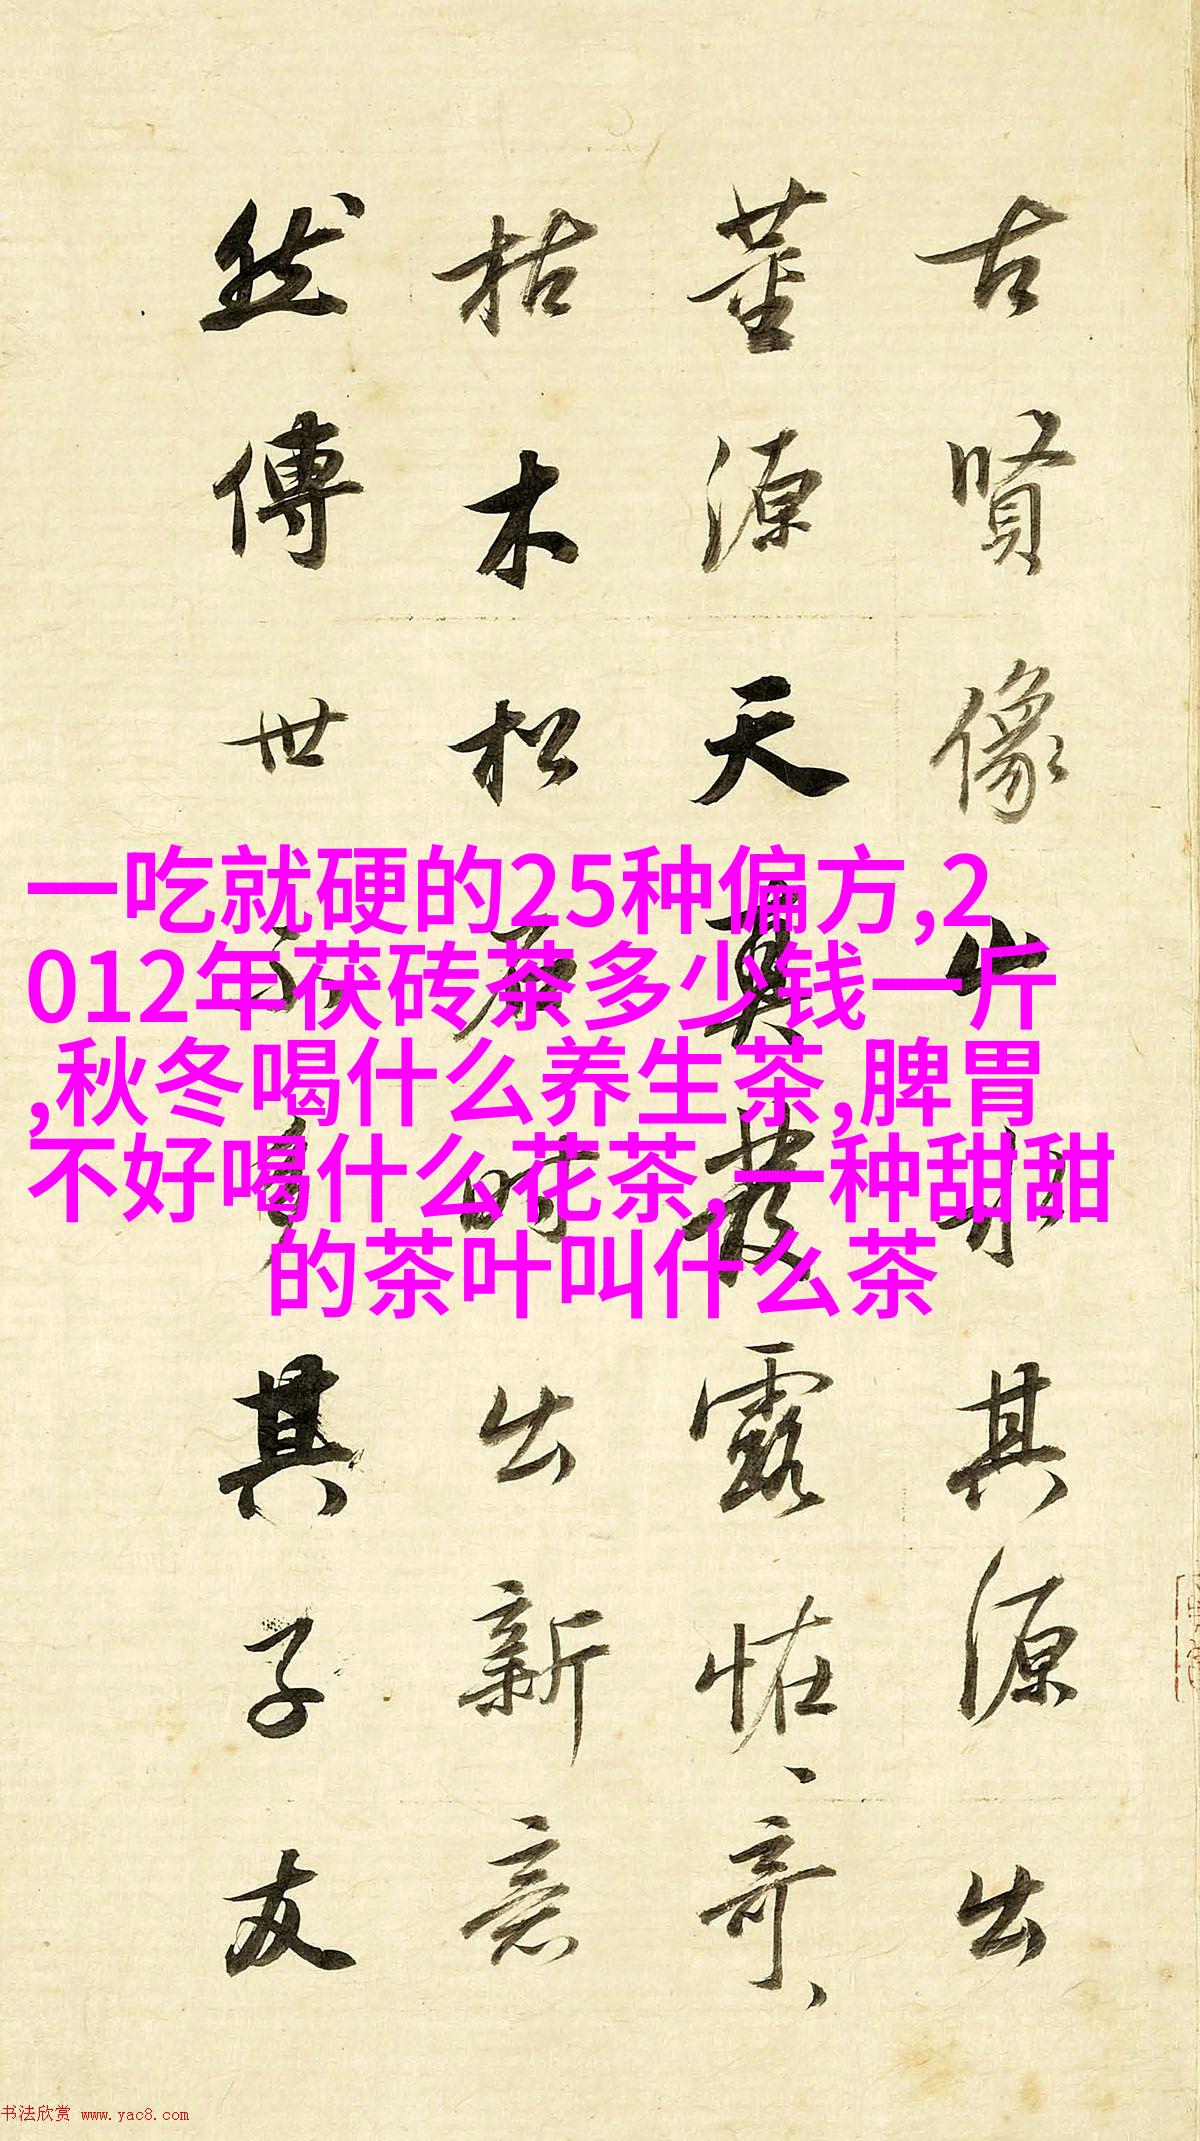 古賢像出於其源出
董源天真叢露怪奇
枯木松石時出新意
然傳世不多其子友
一吃就硬的25种偏方,2
012年茯砖茶多少钱一斤
,秋冬喝什么养生茶,脾胃
不好喝什么花茶,一种甜甜
的茶叶叫什么茶
书法欣赏 www.yac8.com